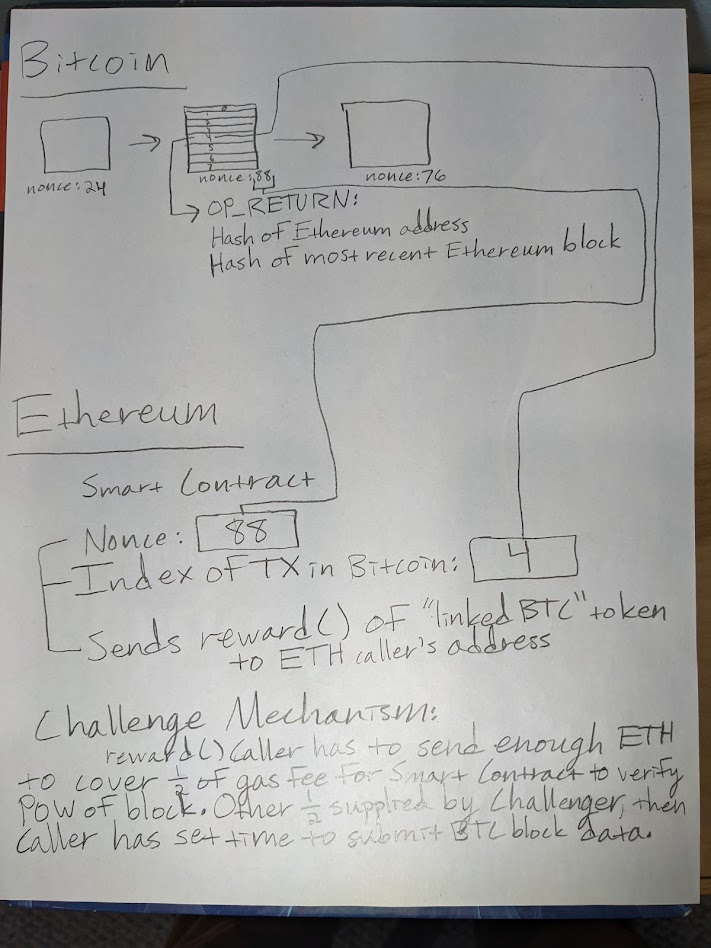 Bitcoin
0
1
2
3
4
5
6
7
nonce:24
nonce:88
nonce:76
OP_RETURN:
Hash of Ethereum address
Hash of most recent Ethereum block
Ethereum
Smart Contract
Nonce: 88
Index of TX in Bitcoin: 4
Sends reward() of "linked BTC" token
to ETH caller's address
Challenge Mechanism:
reward() caller has to send enough ETH
to cover 1/2 of gas fee for Smart Contract to verify
POW of block. Other 1/2 supplied by Challenger, then
caller has set time to submit BTC block data.